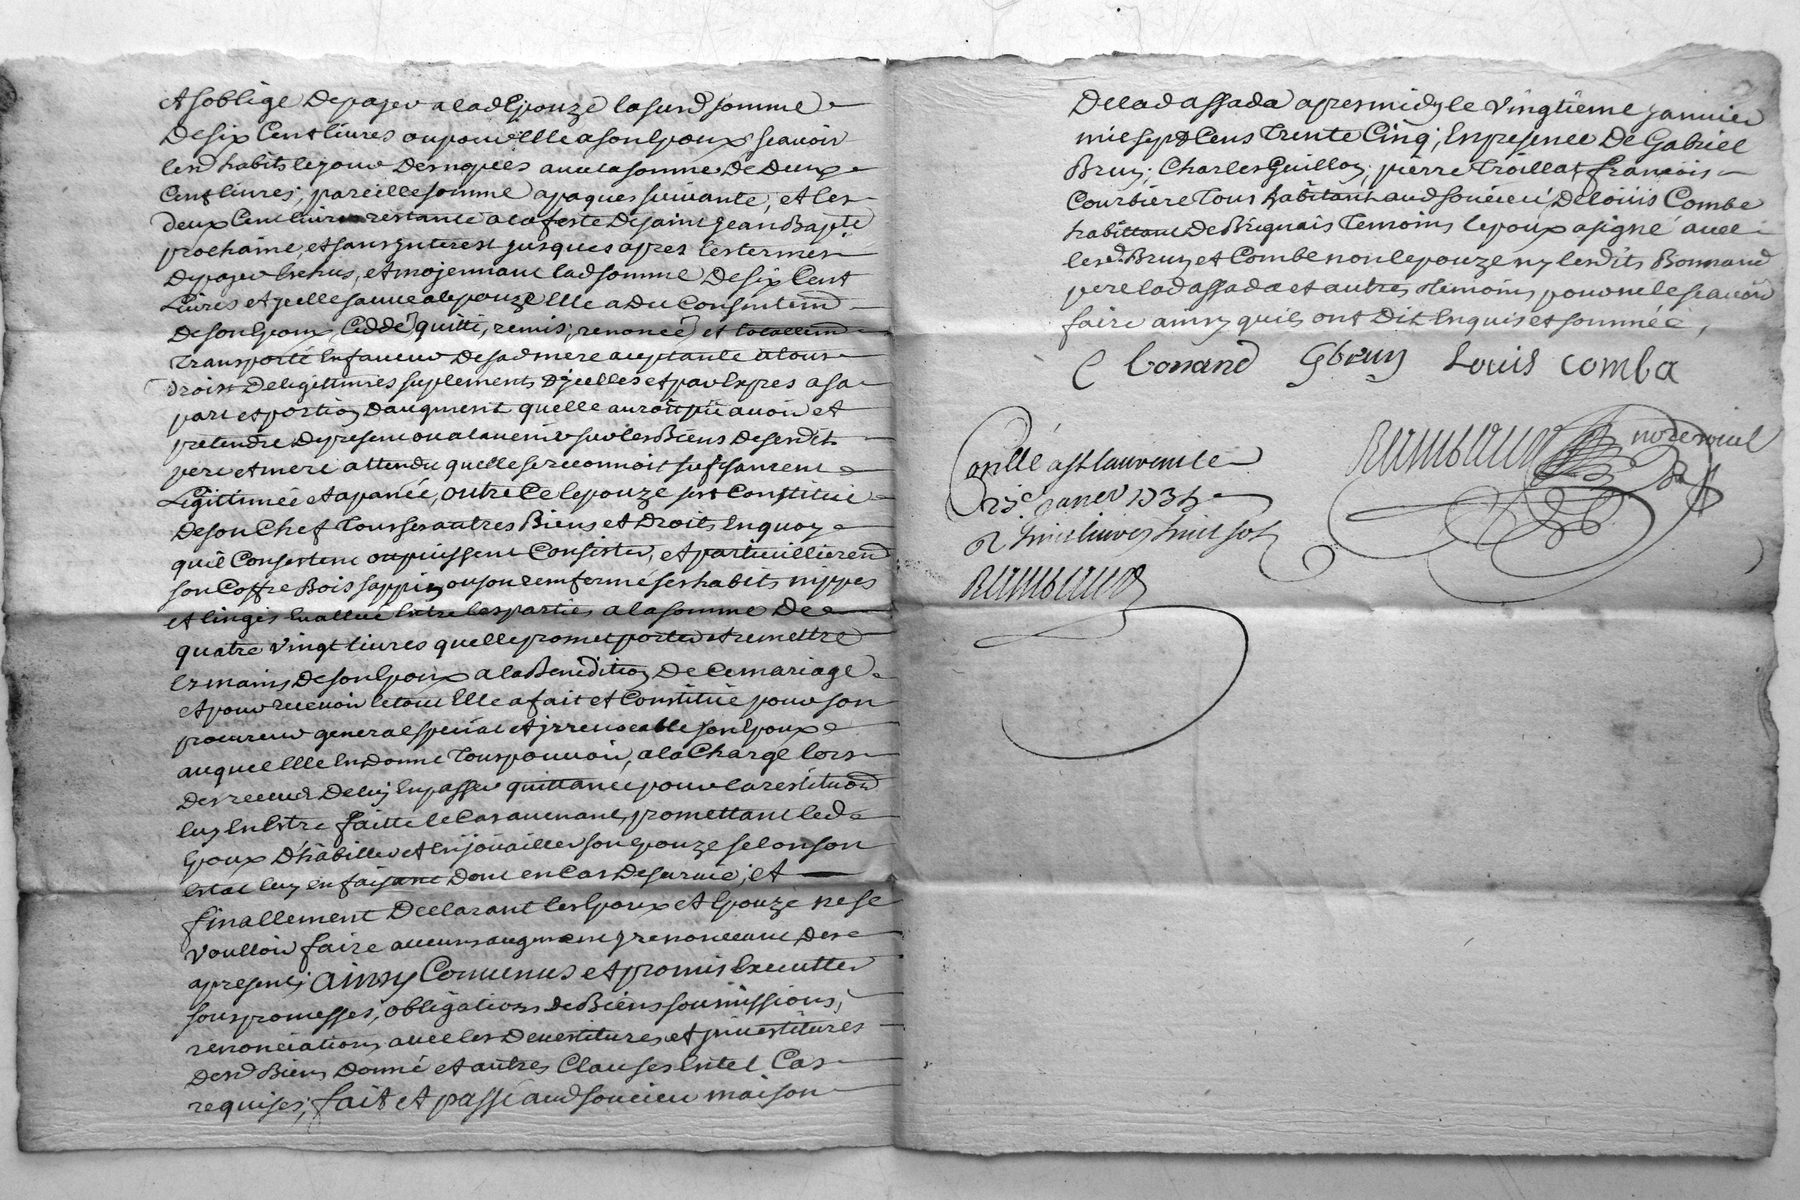 et soblige de payer a lad epouze la susd somme
de six cent livres ou pour elle a son epoux scavoir
lesd habits le jour des nopces avec la somme de deux
cent livres, pareille somme a paques suivante, et les
deux cent livres restante a la feste de saint jean Bapte
prochaine, et sans interest jusques apres les termes
de payer echus, et moyennant lad somme de six cent
Livres et icelle sauve a lepouze elle a du consentemd
de son epoux ceddé quitté, remis, renoncé et totallemd
transporté en faveur de sad mere acceptante a tous
droits de legittimes suplements dycelles et par expres a sa
part et portion daugment quelle auroit pû avoir et
pretendre de present ou a lavenir sur les Biens de sesdits
pere et mere attendu quelle se reconnoit sufisament
Legittimée et apanée, outre ce lepouze sest constitué
de son chef tous ses autres Biens et droits en quoy
quil consistent ou puissent consister, et particuillieremd
son coffre Bois sappin ou sont renfermé ses habits nippes
et linges evallué entre les parties a la somme de
quatre vingt livres quelle promet porter et remettre
es mains de son epoux a la Benedition de ce mariage
et pour recevoir le tout elle a fait et constitué pour son
procureur general special et jrrevocable son epoux
auquel elle en donne tous pouvoir, a la charge lors
des receus de luy en passer quittance pour la restitutiond
luy en estre faitte le cas avenant, promettant led
epoux d'habiller et enjoüailler son epouze selon son
estat luy en faisant don en cas de survie; et
finallement declarant les epoux et epouze ne se
voulloir faire aucuns augment y renonceant des
a present; ainsy convenus et promis executter
sous promesses, obligations de Biens soumissions,
renonciations avec les devestitures et jnvestitures
desd Biens donné et autres clauses en tel cas
requises; fait et passé aud soucieu maison
de lad assada apres midy le vingtième janvier
mil sept cens trente cinq; en presence de Gabriel
Bruy; Charles Guillon; pierre Troillat françois
Courbiere tous habitant aud soucieu, de loüis Combe
habittant de Brignais temoins lepoux a signé avec
lesd. Bruy et Combe non lepouze ny lesdits Bonnand
pere lad assada et autres temoins pour ne le scavoir
faire ainsy quils ont dit enquis et sommée,
C bonand Gbruy Louis comba
Rimbaud
no re royal
Conllé a st laurent le
25e janer 1735
R huit livres huit sols
Rimbaud